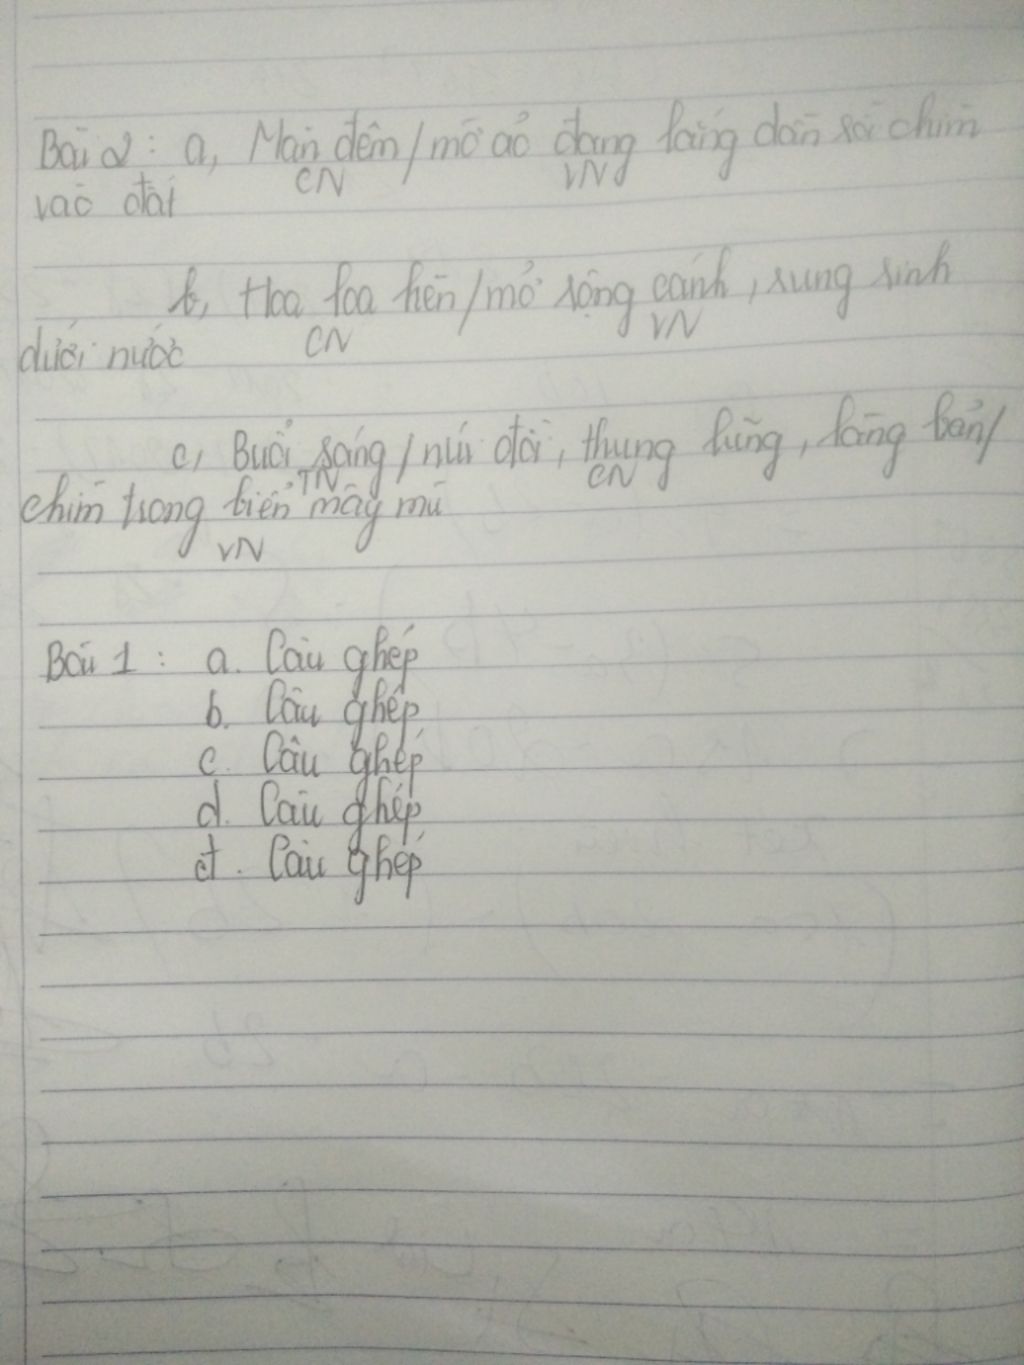 Bài 2: a, Màn đêm/mờ ảo đang lắng dần rồi chìm
CN VN
vào đất
b, Hoa loa kèn/mở rộng cánh, rung rinh
CN VN
dưới nước
c, Buổi sáng/núi đồi, thung lũng, làng bản/
TN CN
chìm trong biển mây mù
VN
Bài 1: a. Câu ghép
b. Câu ghép
c. Câu ghép
d. Câu ghép
đ. Câu ghép